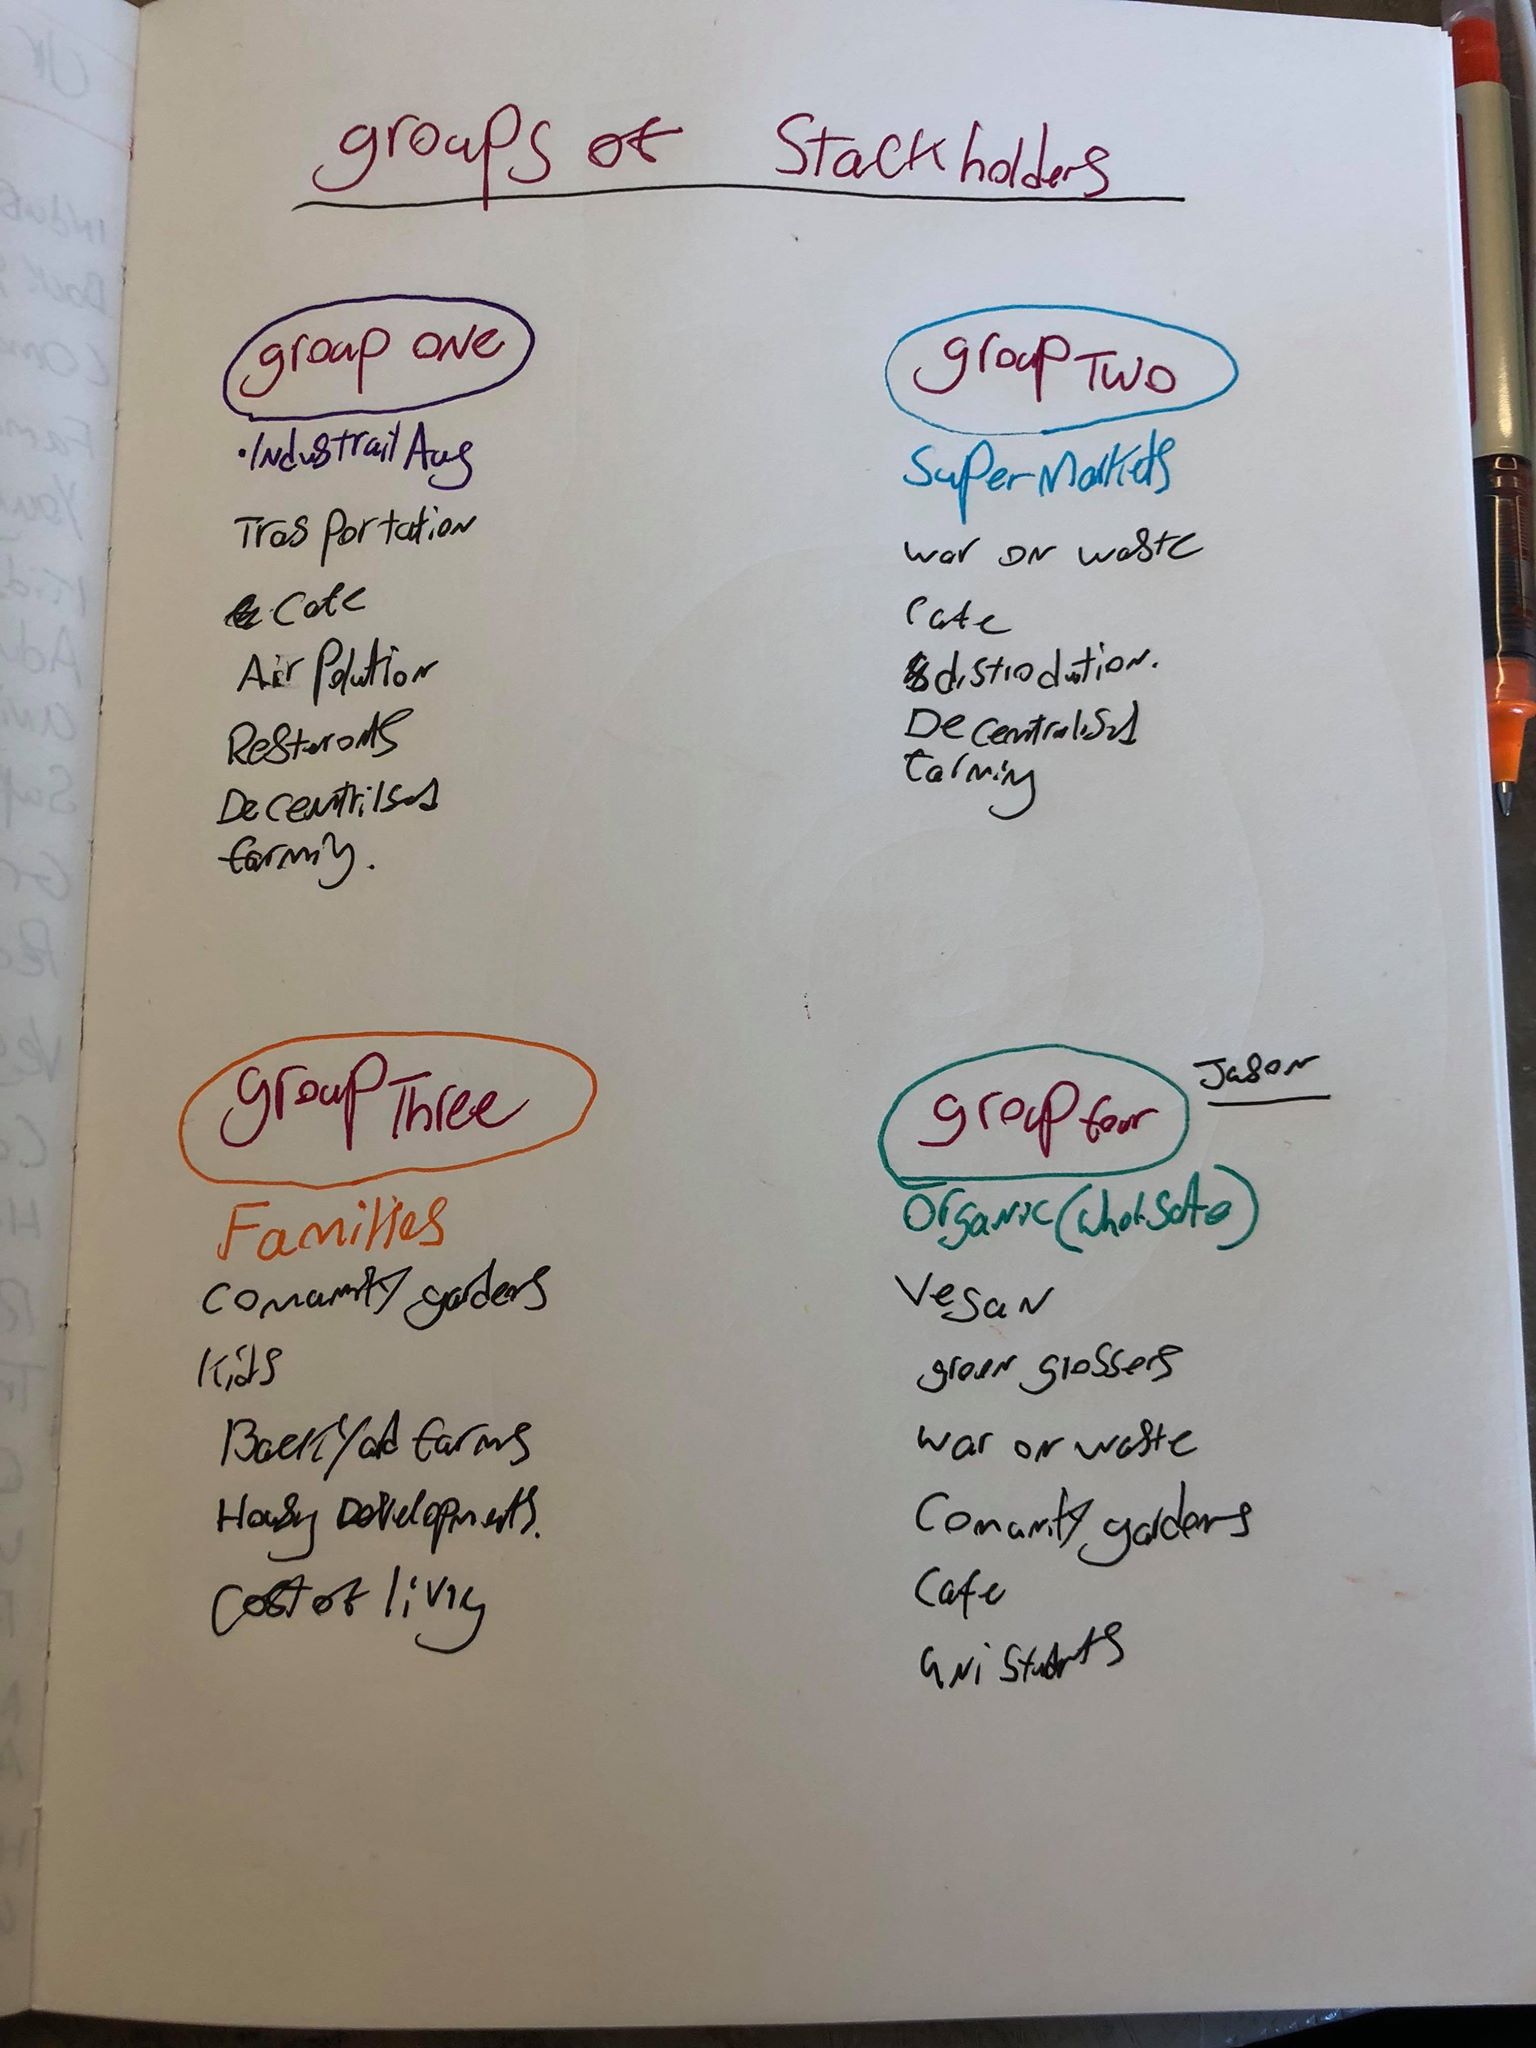 groups of Stackholders
group one
• Industrail Aug
Trasportation
Cafe
Air Polution
Resteronts
Decentrilsed
farming.
group Two
Super Markets
war on waste
Cafe
distrodution.
Decentralised
farming
group Three
Families
Comunity gardens
Kids
BackYard farms
Housing Developments.
Cost of living
group four
Jason
Organic (wholsale)
Vegan
green grossers
war on waste
Comunity gardens
Cafe
uni Students